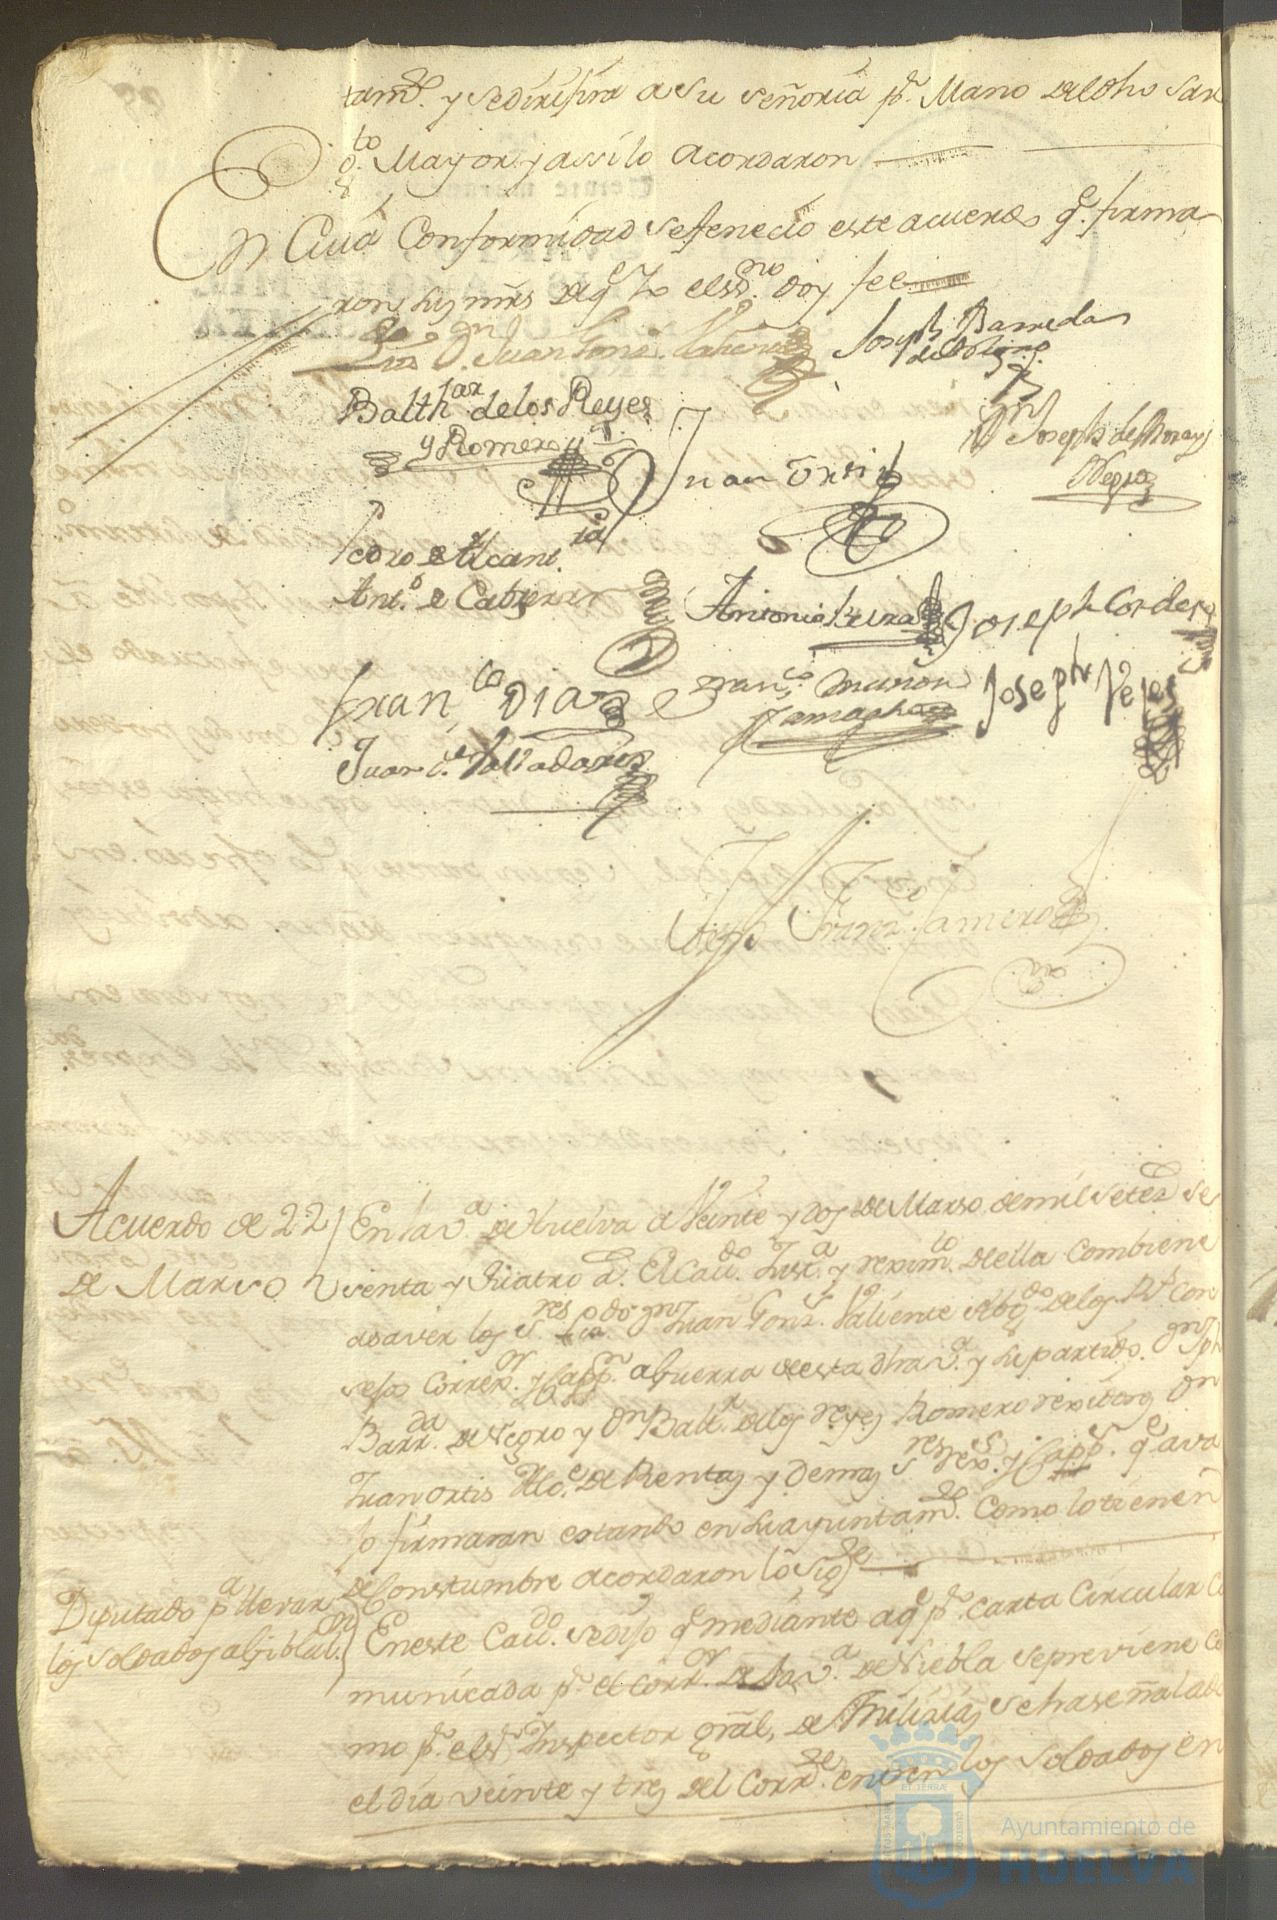 tam.to y se dirixira a su señoria p.r Mano del dho Sar
g.to Mayor y assi lo acordaron
En Cuia Conformidad se feneció este acuerdo q.e firma
ron sus mrds de q.e Yo el ss.no doy fee
Liz.do D.n Juan Gonz. Valiente
Joseph Barreda
Balth.ar de los Reyes
y Romero
Juan Ortis
D.n Joseph de
Negro
Pedro de Alcant.ra
Ant.o de Cabrera
Antonio
Joseph Cordero
Fran.co Diaz
Fran.co Muñon
Joseph Veles
Juan de Valladares
Fran.co Camero
Acuerdo de 22
de Marso
En la v.a de Huelva a Veinte y dos de Marso de mil setez.s se
senta y quatro a.s El Cav.do Just.a y rexim.to de ella combiene
a saver los S.res Liz.do D.n Juan Gonz.s Valiente Abog.do de los R.s Con
sejos Correx.or y Cap.n a Guerra de esta dha v.a y su partido, D.n Jph
Barr.da de Negro y D.n Balt.r de los reyes Romero rexidores D.n
Juan Ortis Alc.e de Rentas y demas S.res rex.s y Cap.s q.e ava
jo firmaran estando en su ayuntam.to Como lo tienen
de Constumbre acordaron lo sig.te
Diputado p.a llevar
los soldados a Gibral.on
En este Cav.do se dijo q.e mediante a q.e p.r carta Circular Co
municada p.r el Corr.or de la v.a de Niebla se previene Co
mo p.r el s.r Inspector gräl, de Milisias se ha señalado
el dia veinte y tres del Corr.te entren los soldados en
Ayuntamiento de
HUELVA